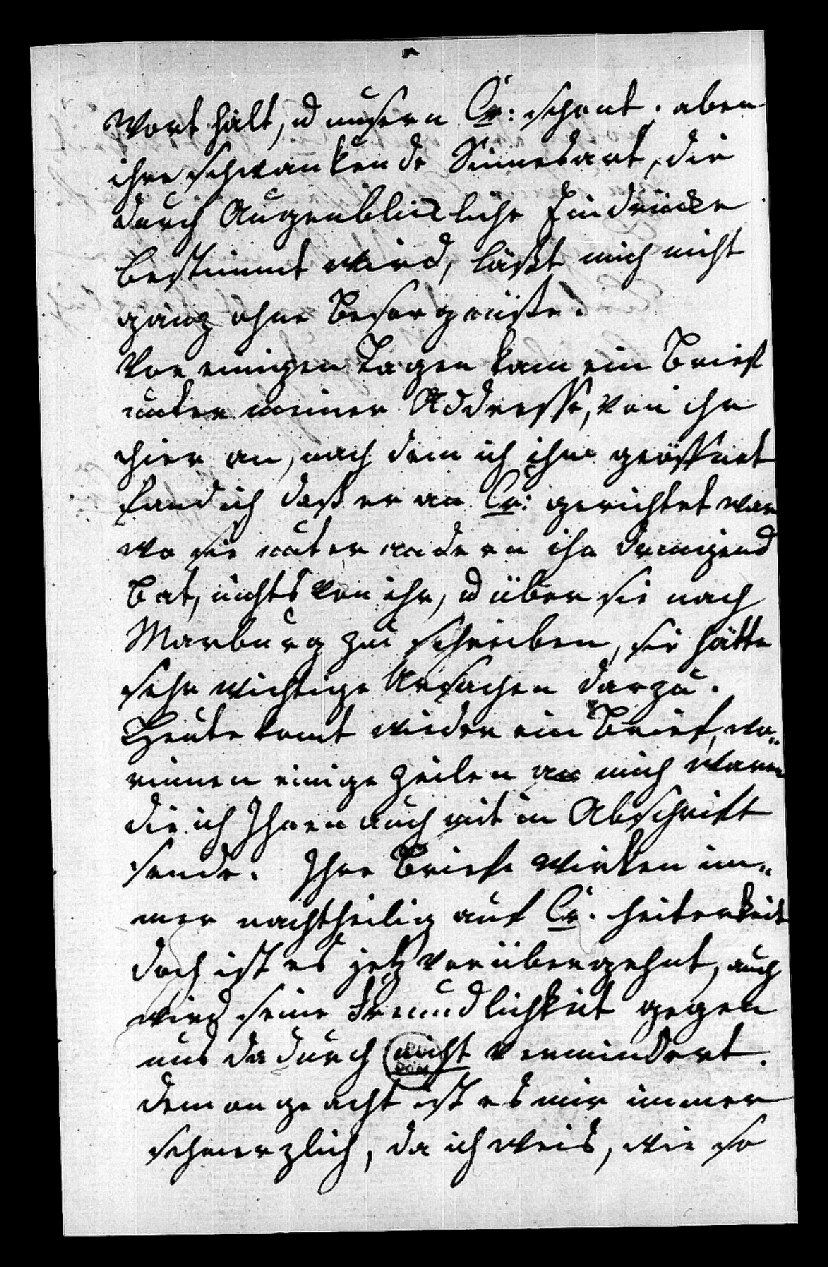 Wort hält, u unsern Cr: schont; aber
ihre schwankende Sinnesart, die
durch Augenblickliche Eindrücke
bestimmt wird, läßt mich nicht
ganz ohne Besorgniße.
Vor einigen Tagen kam ein Brief
unter meiner Addresse, von ihr
hier an, nach dem ich ihn geöffnet
fand ich daß er an Cr: gerichtet war
wo sie unter andern ihn dringend
bat, nichts von ihr, u über sie nach
Marburg zu schreiben, sie hätte
sehr wichtige Ursachen darzu.
Heute komt wieder ein Brief, wo=
rinnen einige Zeilen an mich waren
die ich Ihnen auch mit in Abschrift
sende. Ihre Briefe wirken im=
mer nachtheilig auf Cr. heiterkeit
doch ist es jetz vorübergehnt, auch
wird seine Freundlichkeit gegen
uns dadurch nicht vermindert.
dem ongeacht ist es mir immer
schmerzlich, da ich weis, wie so